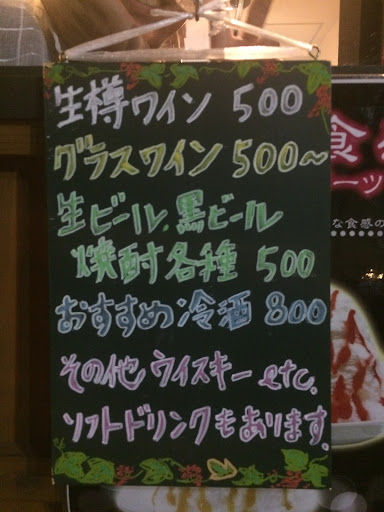 生樽ワイン 500
グラスワイン 500〜
生ビール、黒ビール
焼酎各種 500
おすすめ冷酒 800
その他ウイスキー etc.
ソフトドリンクもあります。
食
ーツ
な食感の